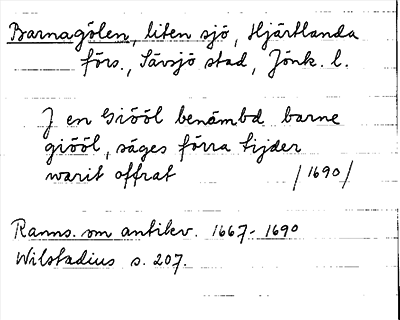 Barnagölen, liten sjö, Hjärtlanda
förs., Sävsjö stad, Jönk. l.
J en Giööl benämbd barne
giööl, säges förra tijder
warit offrat /1690/
Ranns. om antikv. 1667-1690
Wilstadius s. 207.